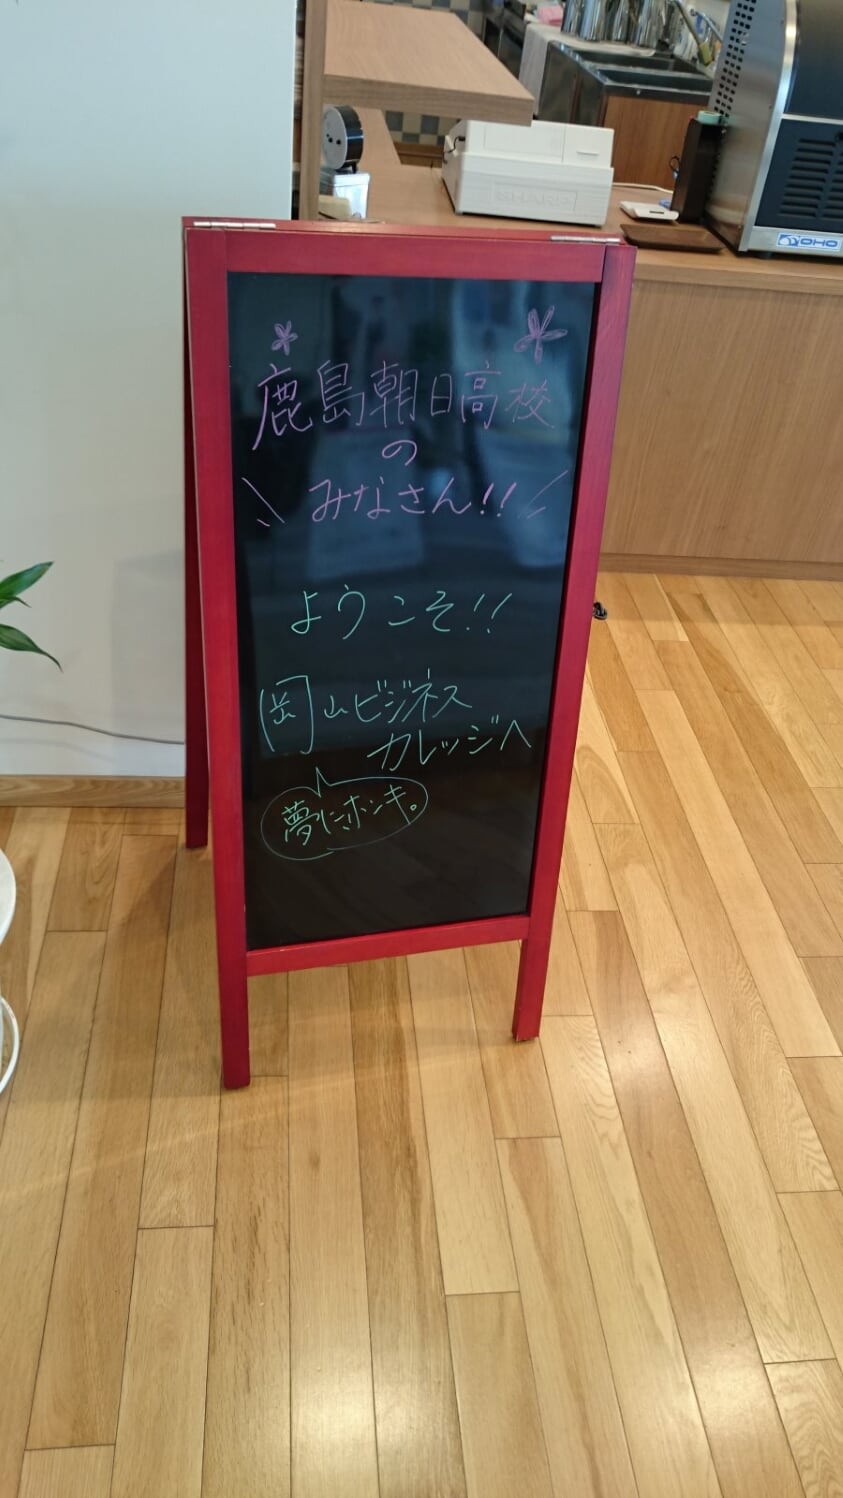 SHARP
OHO
鹿島朝日高校
の
みなさん!!
ようこそ!!
岡山ビジネス
カレッジへ
夢にホンキ。